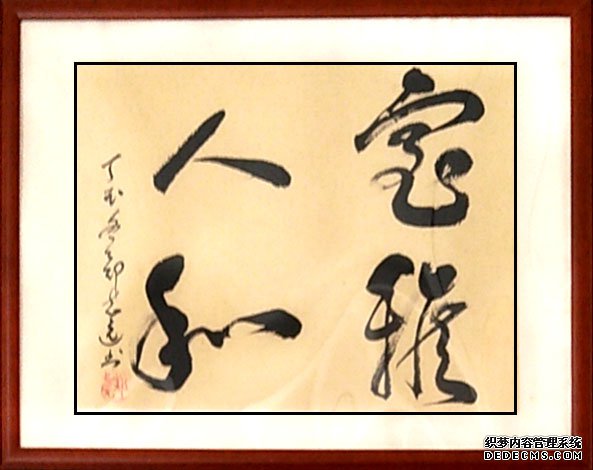 室雅
人和
丁亥
书
织梦内容管理系统
DEDECMS.COM